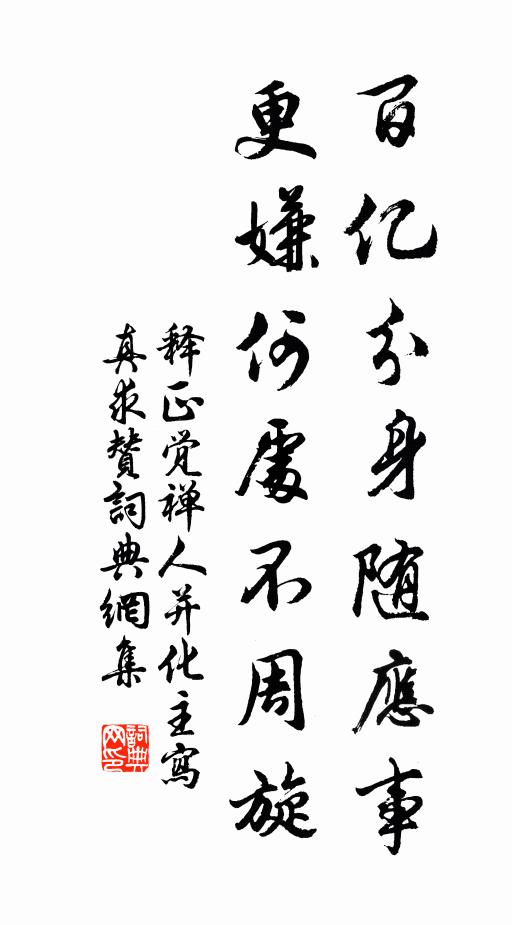 百亿分身随應事
更嫌何處不周旋
释正觉禅人并化主寫
真求贊詞典網集
詞典网印